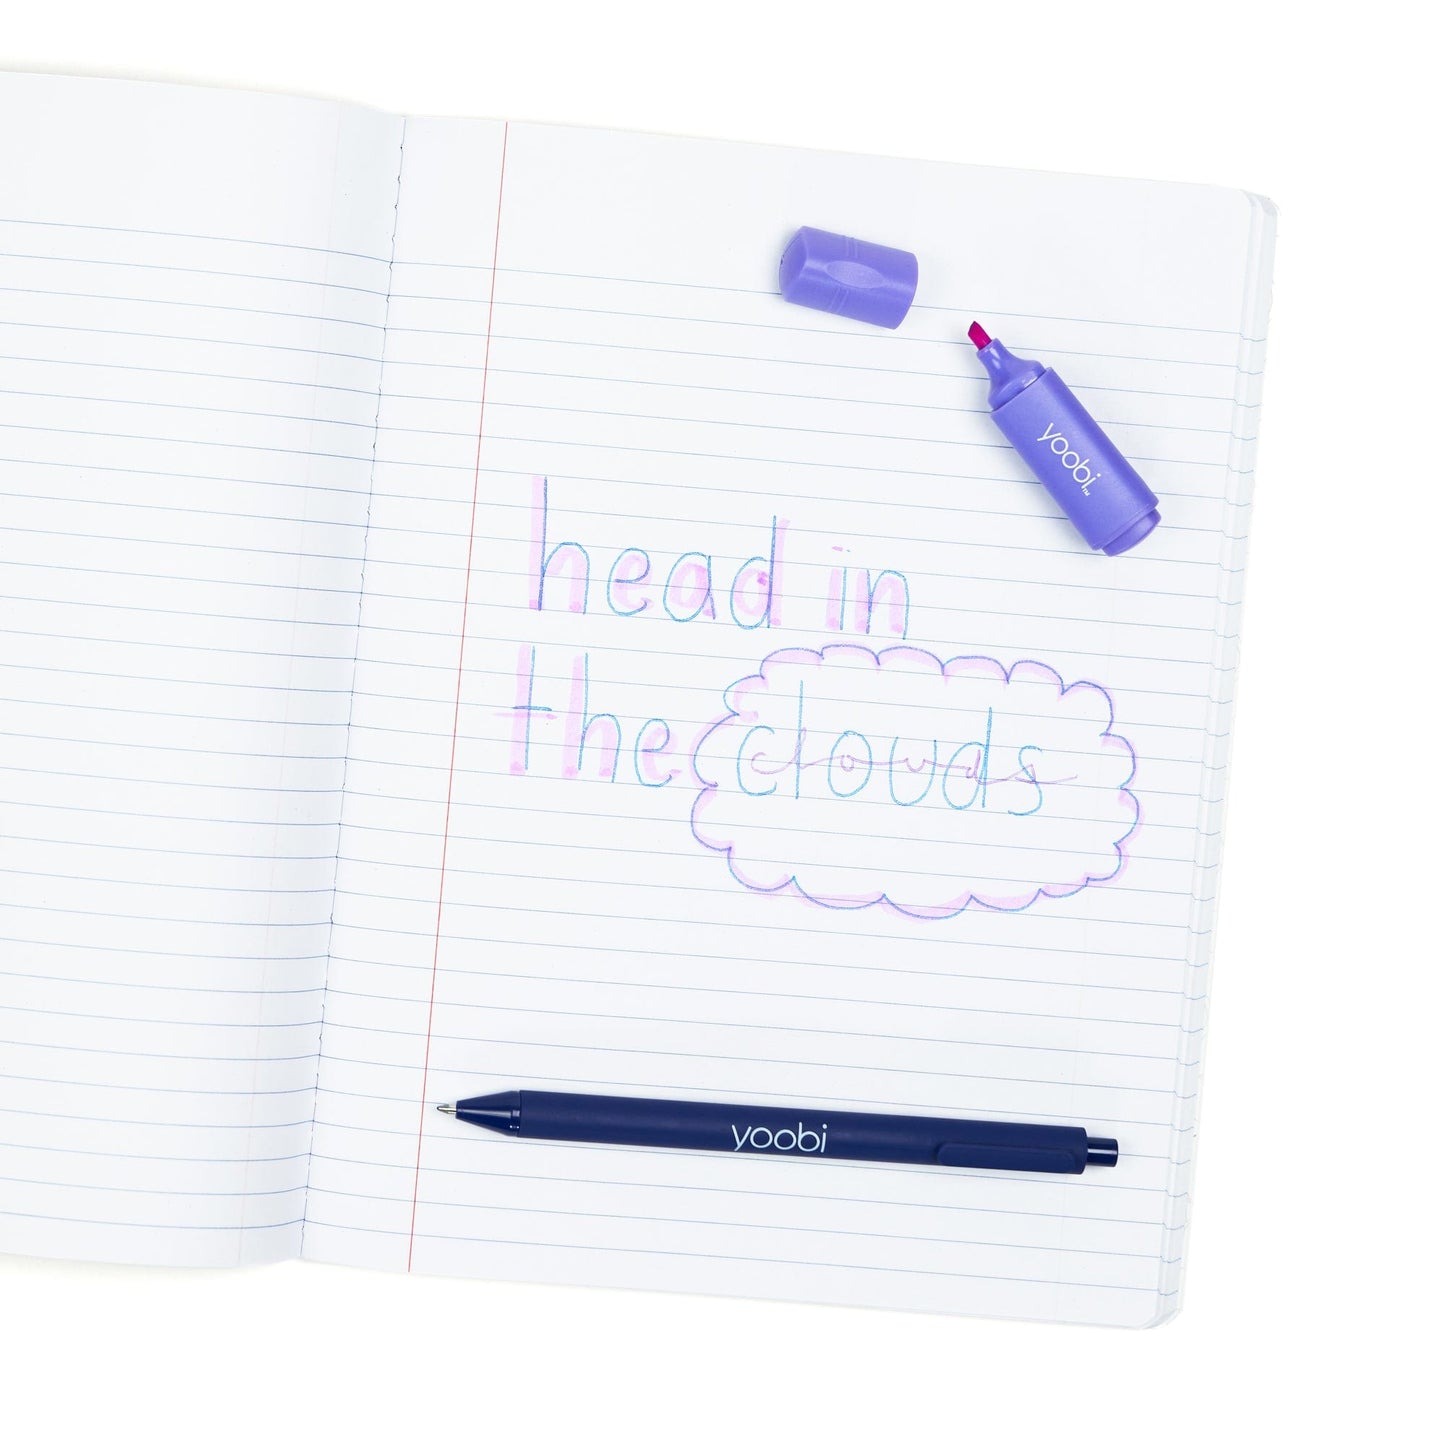 yoobi™
head in
the clouds
clouds
yoobi